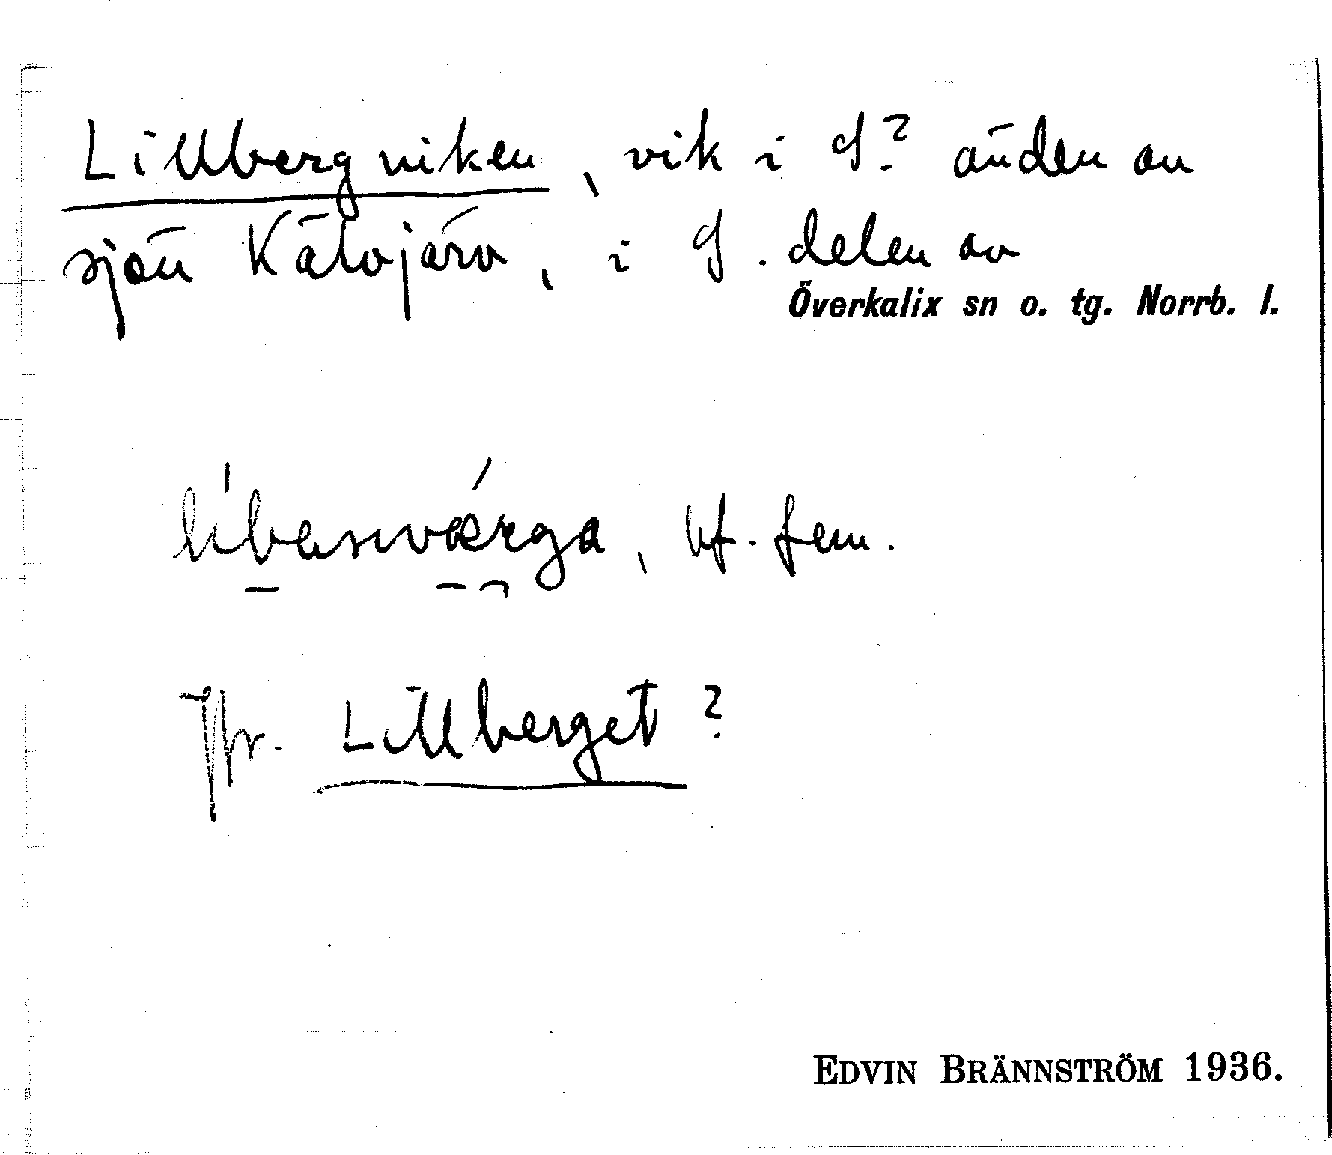 Lillbergviken, vik i S.? änden av
sjön Kälvjärv, i S. delen av
Överkalix sn o. tg. Norrb. l.
bf. fem.
Jfr. Lillberget?
EDVIN BRÄNNSTRÖM 1936.